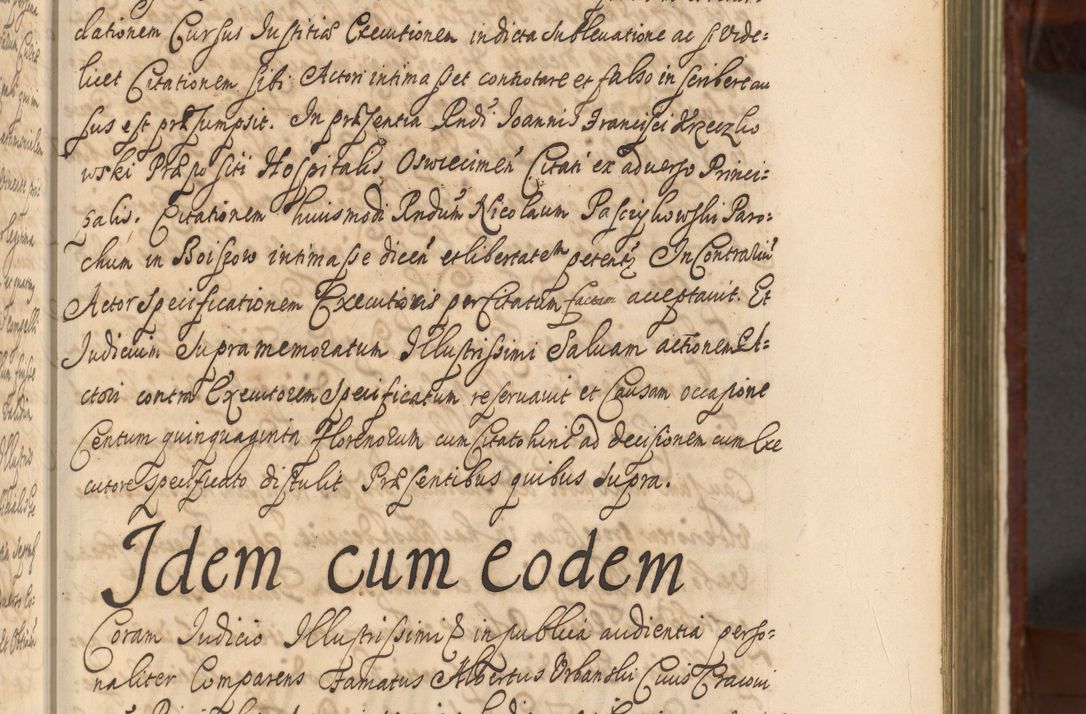 clationem Cursus Justitiæ Executionem in dicta sublevatione ac si vide=
licet Citationem sibi Actori intimasset connotare et falso inscribere au
sus est præsumpsit. In præsentia Rndi Joannis Francisci Krzeczko
wski Præpositi Hospitalis Oswiecimen Citati ex adverso Princi=
palis. Citationem huiusmodi Rndum Nicolaum Pasczykowski Paro=
chum in Boiszow intimasse dicen et libertatem petenti In Contrarium
Actor specificationem Executionis per Citatum factam acceptavit. Et
Judicium supramemoratum Illustrissimi Salvam actionem A=
ctori contra Executorem specificatum reservavit et Causam occasione
Centum quinquaginta Florenorum cum Citato hinc ad decisionem cum Exe
cutore specificato distulit Præsentibus quibus supra.
Idem cum eodem
Coram Judicio Illustrissimi & in publica audientia perso=
naliter Comparens Famatus Albertus Urbanski Civis Cracovi